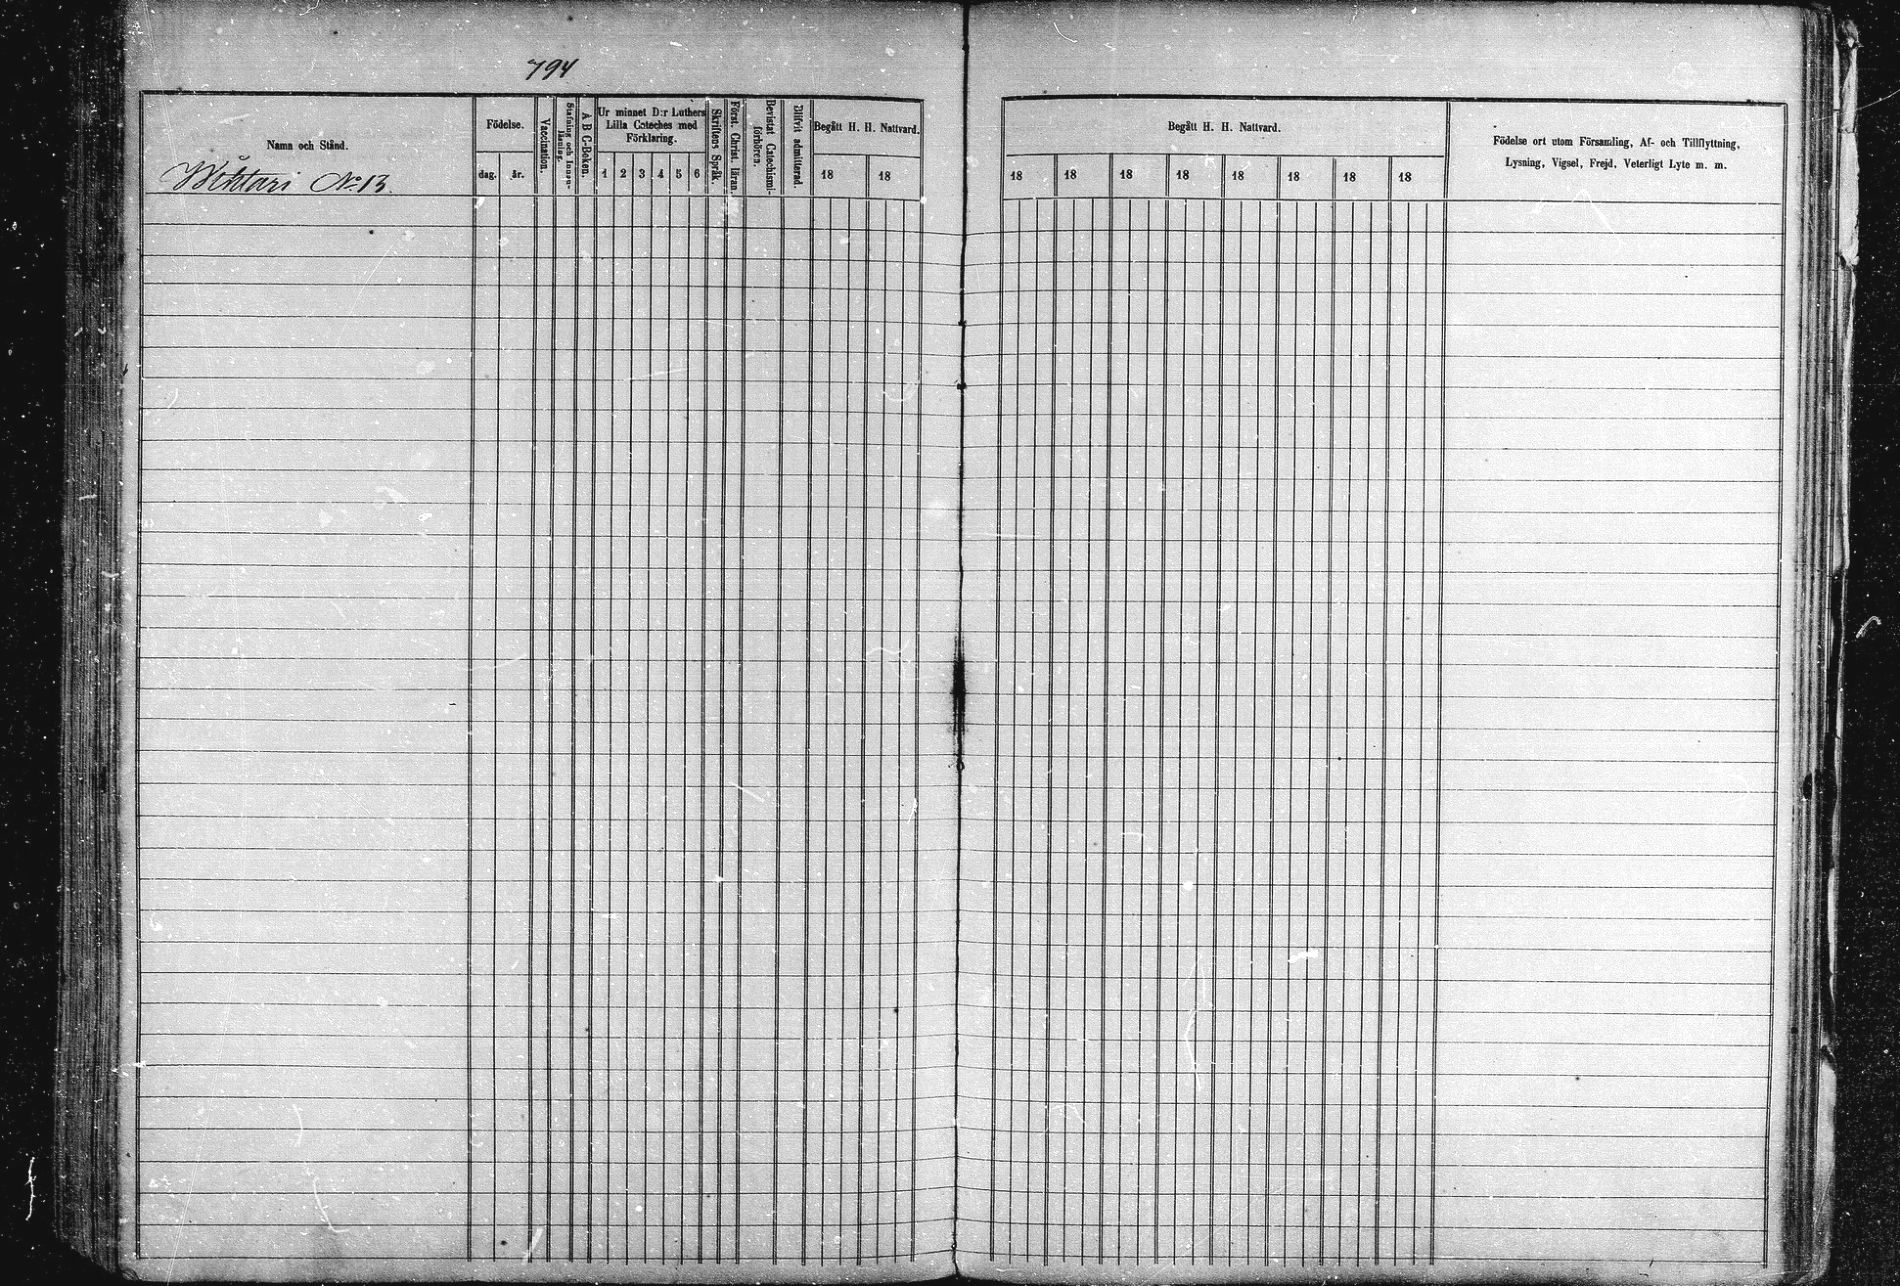 794
Nama och Stånd.
No 13.
Födelse.
dag. år.
Vaccination.
A B C-Boken.
Ur minnet D:r Luthers
Lilla Cateches med
Förklaring.
1 2 3 4 5 6
Skriftens Språk.
Först. Christ. läran.
Bevistat Catechismi-
förhören.
Blifvit admitterad.
Begått H. H. Nattvard.
18 18
Begått H. H. Nattvard.
18 18 18 18 18 18 18 18
Födelse ort utom Församling, Af- och Tillflyttning,
Lysning, Vigsel, Frejd, Veterligt Lyte m. m.